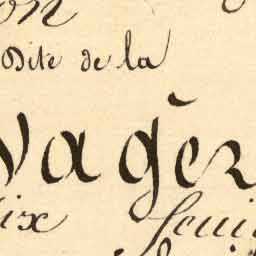 on
Dite de la
vager
ix feui